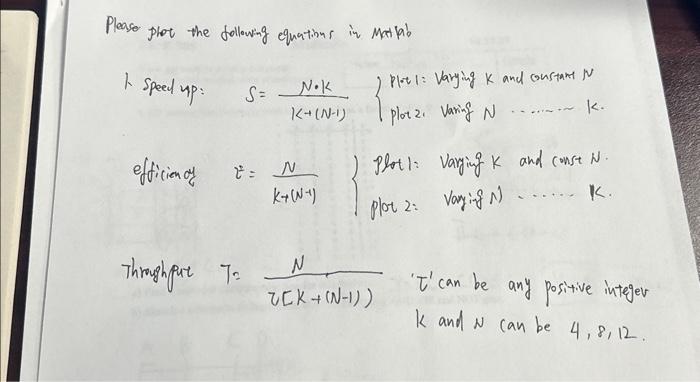 Please plot the following equations in Matlab
1. Speed up: S = N•K / K+(N-1) { Plot 1: Varying K and constant N
plot 2. Varing N ........ K.
efficiency E = N / K+(N-1) { Plot 1: Varying K and const N.
plot 2: Varying N ...... K.
Throughput T= N / τ[K+(N-1)) 'τ' can be any positive integer
K and N can be 4, 8, 12.